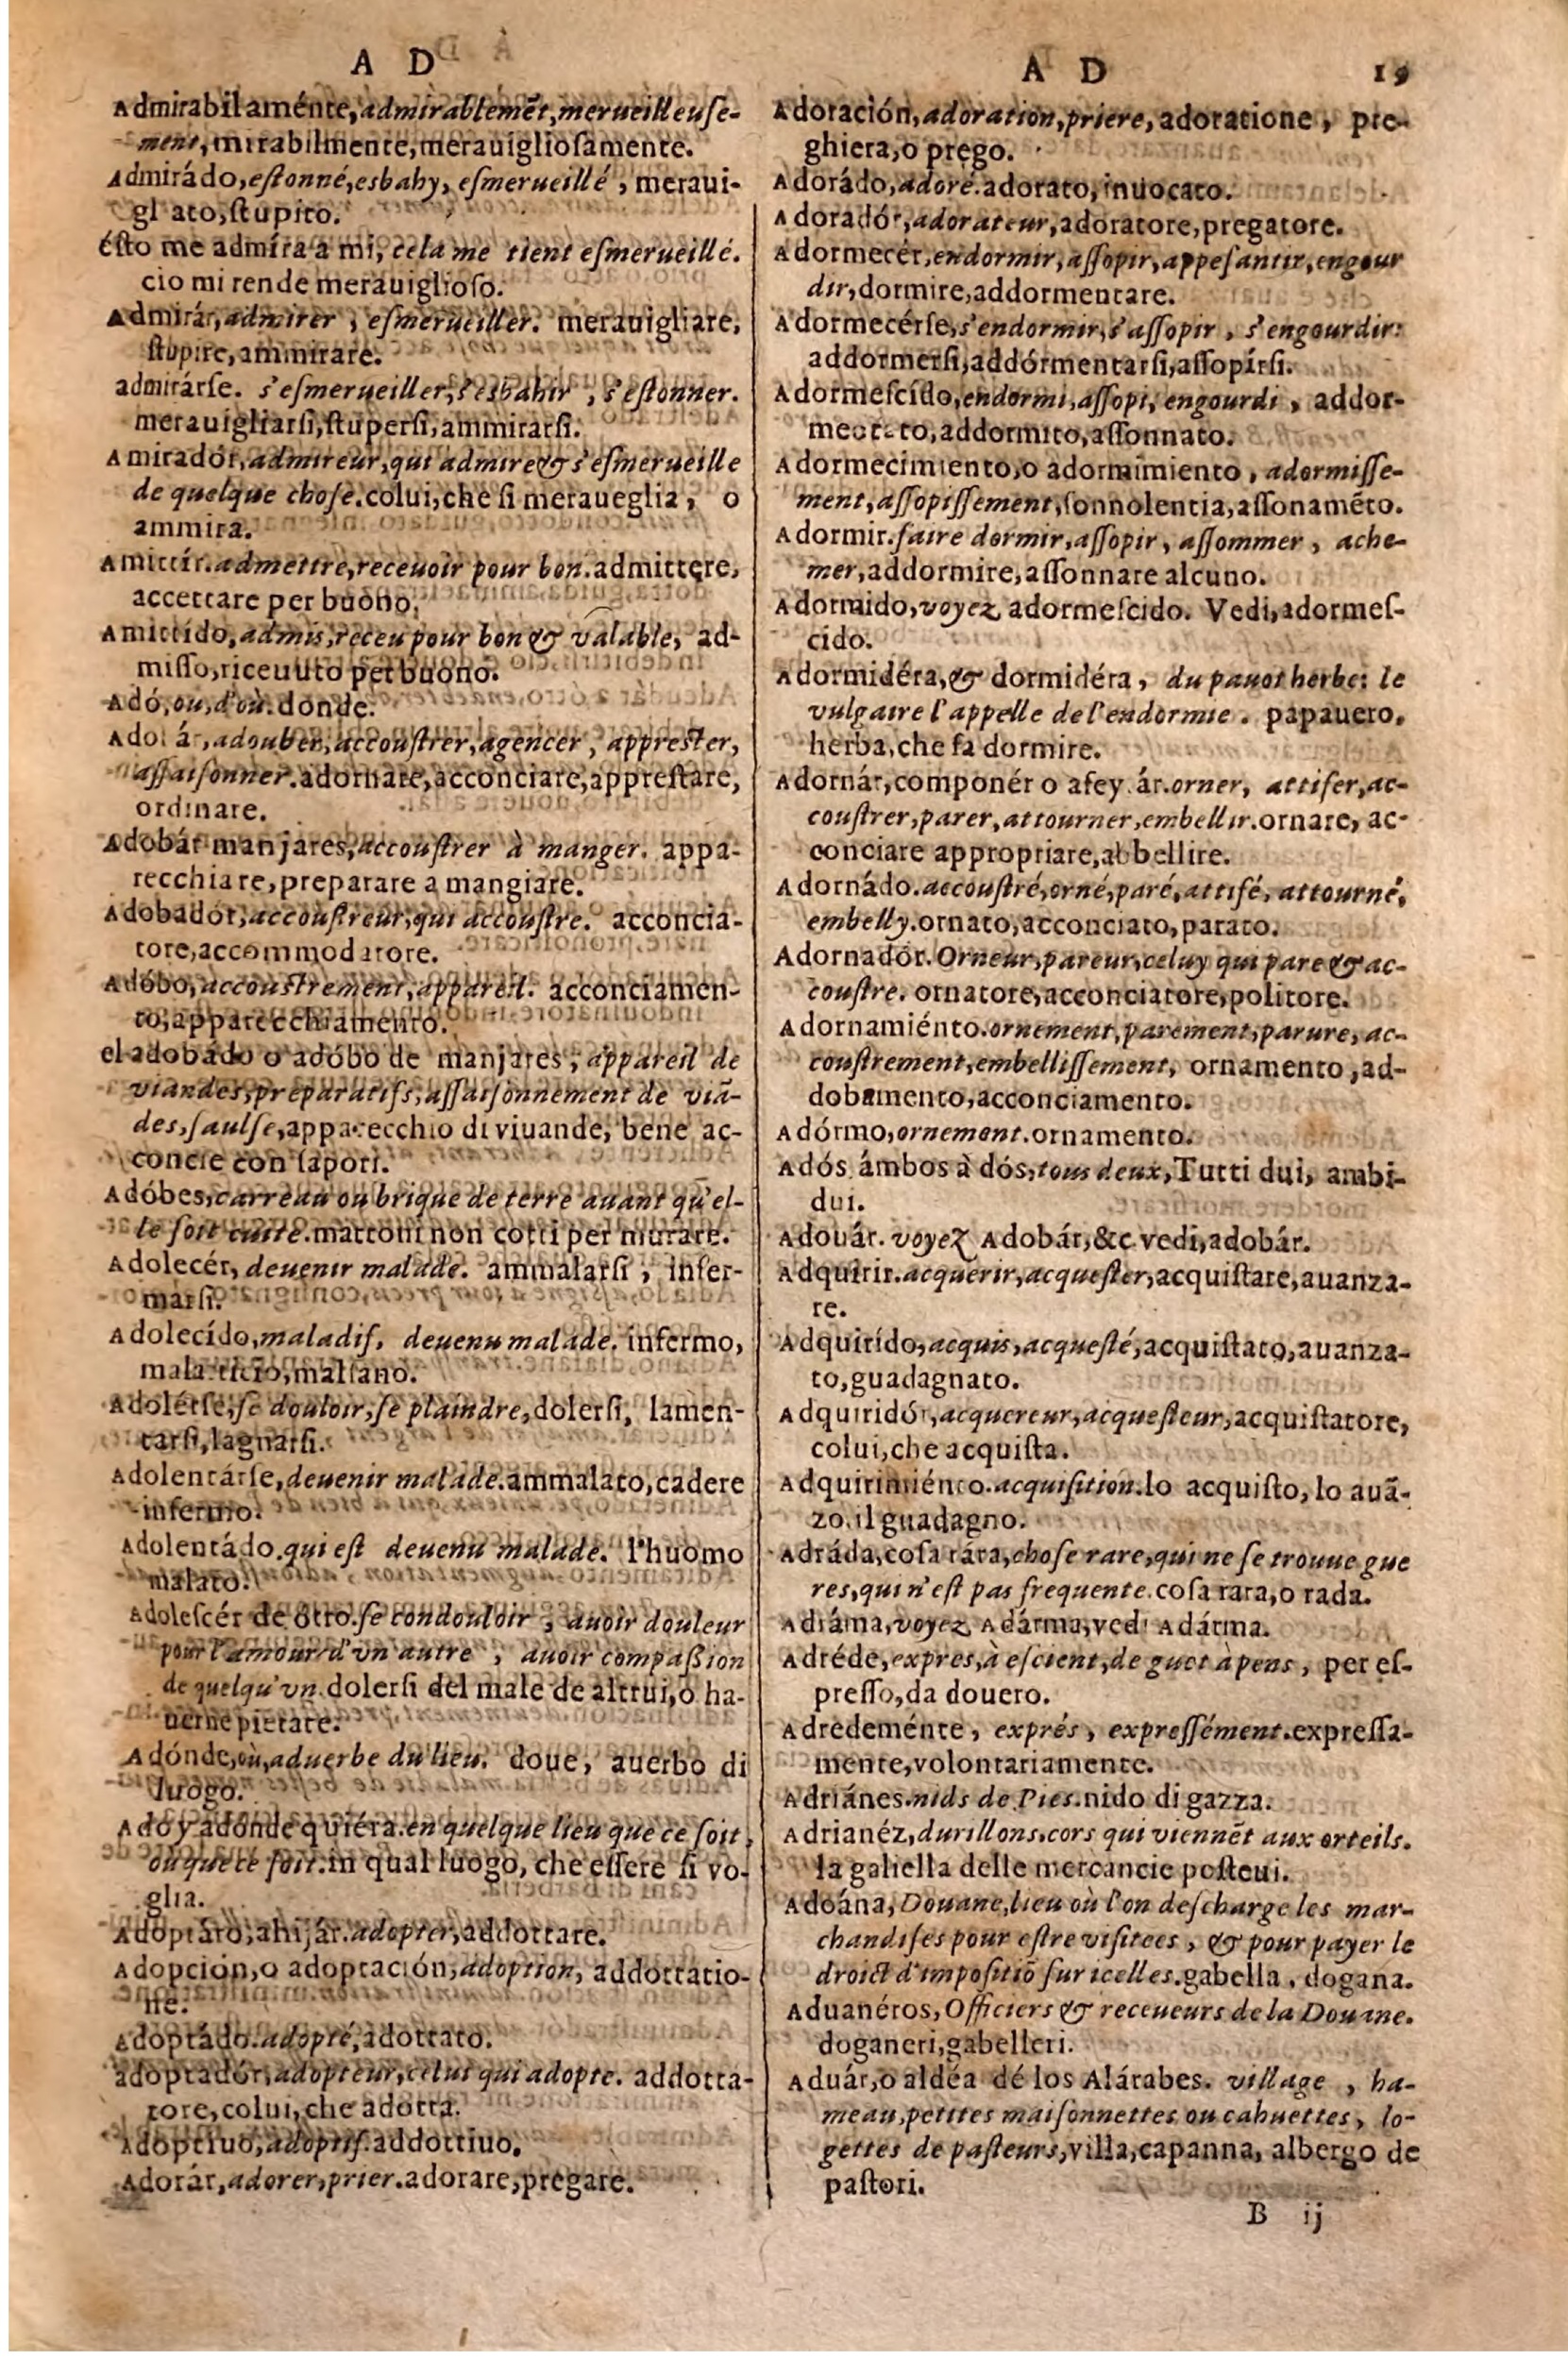 A D
Admirabilaménte, admirablemẽt, merueilleuſe-
ment, mirabilmente, merauiglioſamente.
Admirádo, eſtonné, esbahy, eſmerueillé, meraui-
gl ato, ſtupito.
éſto me admíra a mi, cela me tient eſmerueillé.
cio mi rende merauiglioſo.
Admirár, admirer, eſmerueiller. merauigliare,
ſtupire, ammirare.
admirárſe. s'eſmerueiller, s'esbahir, s'eſtonner.
merauigliarſi, ſtuperſi, ammirarſi.
Amiradór, admireur, qui admire & s'eſmerueille
de quelque choſe. colui, che ſi meraueglia, o
ammira.
Amittír. admettre, receuoir pour bon. admittere,
accettare per buono.
Amittído, admis, receu pour bon & valable, ad-
miſſo, riceuuto per buono.
Adó, ou, d'où. donde.
Ado ár, adouber, accouſtrer, agencer, appreſter,
aſſaiſonner. adornare, acconciare, appreſtare,
ordinare.
Adobár manjares, accouſtrer à manger. appa-
recchiare, preparare a mangiare.
Adobadór, accouſtreur, qui accouſtre. acconcia-
tore, accommodatore.
Adóbo, accouſtrement, appareil. acconciamen-
to, apparecchiamento.
el adobádo o adóbo de manjares, appareil de
viandes, preparatifs, aſſaiſonnement de viã-
des, ſaulſe, apparecchio di viuande, bene ac-
concie con ſapori.
Adóbes, carreau ou brique de terre auant qu'el-
le ſoit cuite. mattoni non cotti per murare.
Adolecér, deuenir malade. ammalarſi, infer-
marſi.
Adolecído, maladif, deuenu malade. infermo,
malaticcio, malſano.
Adolérſe, ſe douloir, ſe plaindre, dolerſi, lamen-
tarſi, lagnarſi.
Adolentárſe, deuenir malade. ammalato, cadere
infermo.
Adolentádo. qui eſt deuenu malade. l'huomo
malato.
Adoleſcér de ótro. ſe condouloir, auoir douleur
pour l'amour d'vn autre, auoir compaßion
de quelqu'vn. dolerſi del male de altrui, o ha-
uerne pietate.
Adónde, où, aduerbe du lieu. doue, auerbo di
luogo.
Adó y adónde quiéra. en quelque lieu que ce ſoit,
ou que ce ſoit. in qual luogo, che eſſere ſi vo-
glia.
Adoptáro, ahijár. adopter, addottare.
Adopción, o adoptación, adoption, addottatio-
ne.
Adoptádo. adopté, adottato.
adoptadór, adopteur, celui qui adopte. addotta-
tore, colui, che adotta.
Adoptiuo, adoptif. addottiuo.
Adorár, adorer, prier. adorare, pregare.
A D 19
Adoración, adoration, priere, adoratione, pre-
ghiera, o prego.
Adorádo, adoré. adorato, inuocato.
Adoradór, adorateur, adoratore, pregatore.
Adormecér, endormir, aſſopir, appeſantir, engour
dir, dormire, addormentare.
Adormecérſe, s'endormir, s'aſſopir, s'engourdir:
addormerſi, addórmentarſi, aſſopírſi.
Adormeſcído, endormi, aſſopi, engourdi, addor-
mentato, addormito, aſſonnato.
Adormecimiento, o adormimiento, adormiſſe-
ment, aſſopiſſement, ſonnolentia, aſſonamẽto.
Adormir. faire dormir, aſſopir, aſſommer, ache-
mer, addormire, aſſonnare alcuno.
Adormido, voyez adormeſcido. Vedi, adormeſ-
cido.
Adormidéra, & dormidéra, du pauot herbe: le
vulgaire l'appelle de l'endormie. papauero.
herba, che fa dormire.
Adornár, componér o afey ár. orner, attifer, ac-
couſtrer, parer, attourner, embellir. ornare, ac-
conciare appropriare, abbellire.
Adornádo. accouſtré, orné, paré, attifé, attourné,
embelly. ornato, acconciato, parato.
Adornadór. Orneur, pareur, celuy qui pare & ac-
couſtre. ornatore, acconciatore, politore.
Adornamiénto. ornement, parement, parure, ac-
couſtrement, embelliſſement, ornamento, ad-
dobamento, acconciamento.
Adórmo, ornement. ornamento.
Adós ámbos à dós, tous deux, Tutti dui, ambi-
dui.
Adouár. voyez Adobár, &c. vedi, adobár.
Adquirir. acquerir, acqueſter, acquiſtare, auanza-
re.
Adquirído, acquis, acqueſté, acquiſtato, auanza-
to, guadagnato.
Adquiridór, acquereur, acqueſteur, acquiſtatore,
colui, che acquiſta.
Adquirimiénto. acquiſition. lo acquiſto, lo auã-
zo. il guadagno.
Adráda, coſa rára, choſe rare, qui ne ſe trouue gue
res, qui n'eſt pas frequente. coſa rara, o rada.
Adráma, voyez Adárma, vedi Adárma.
Adréde, expres, à eſcient, de guet à pens, per eſ-
preſſo, da douero.
Adredeménte, exprés, expreſſément. expreſſa-
mente, volontariamente.
Adriánes. nids de Pies. nido di gazza.
Adrianéz, durillons, cors qui viennẽt aux orteils.
la gabella delle mercancie poſteui.
Adoána, Douane, lieu où l'on deſcharge les mar-
chandiſes pour eſtre viſitees, & pour payer le
droict d'impoſitiõ ſur icelles. gabella, dogana.
Aduanéros, Officiers & receueurs de la Douane.
doganeri, gabelleri.
Aduár, o aldéa dé los Alárabes. village, ha-
meau, petites maiſonnettes ou cahuettes, lo-
gettes de paſteurs, villa, capanna, albergo de
paſtori.
B ij